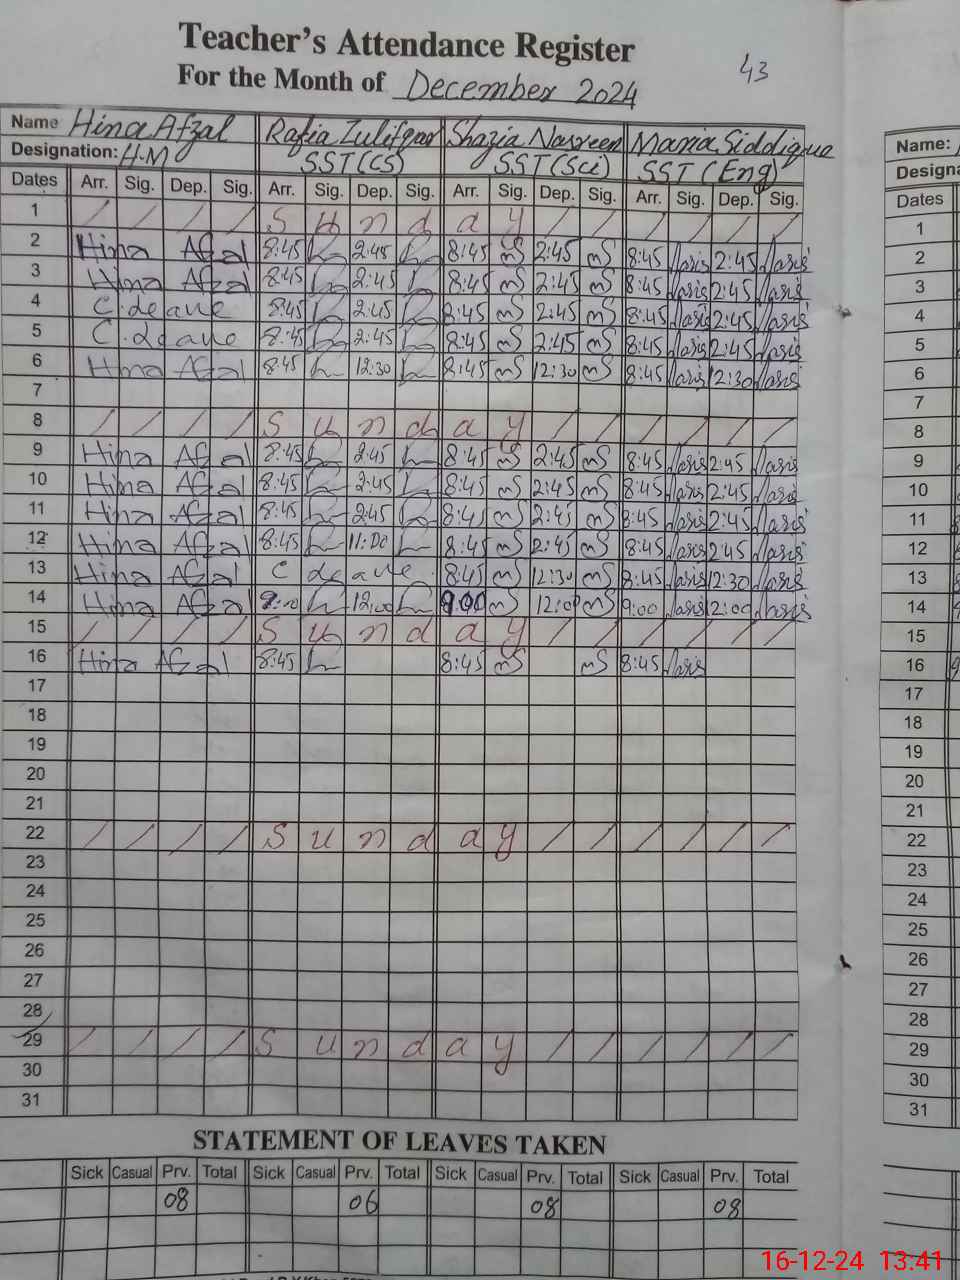 Teacher's Attendance Register
For the Month of December 2024
43
Name Hina Afzal Rafia Zulifqar Shazia Nasreen Maria Siddiqua
Designation: H.M SST (CS) SST (Sci) SST (Eng)
Dates Arr. Sig. Dep. Sig. Arr. Sig. Dep. Sig. Arr. Sig. Dep. Sig. Arr. Sig. Dep. Sig.
1 / / / / S u n d a y / / / / / /
2 Hina Afzal 8:45 2:45 8:45 mS 2:45 mS 8:45 2:45
3 Hina Afzal 8:45 2:45 8:45 mS 2:45 mS 8:45 2:45
4 C.leave 8:45 2:45 8:45 mS 2:45 mS 8:45 2:45
5 C.leave 8:45 2:45 8:45 mS 2:45 mS 8:45 2:45
6 Hina Afzal 8:45 12:30 8:45 mS 12:30 mS 8:45 12:30
7
8 / / / / S u n d a y / / / / / /
9 Hina Afzal 8:45 2:45 8:45 mS 2:45 mS 8:45 2:45
10 Hina Afzal 8:45 2:45 8:45 mS 2:45 mS 8:45 2:45
11 Hina Afzal 8:45 2:45 8:45 mS 2:45 mS 8:45 2:45
12 Hina Afzal 8:45 11:00 8:45 mS 2:45 mS 8:45 2:45
13 Hina Afzal C leave 8:45 mS 12:30 mS 8:45 12:30
14 Hina Afzal 9:00 12:00 9:00 mS 12:00 mS 9:00 12:00
15 / / / / S u n d a y / / / / / /
16 Hina Afzal 8:45 8:45 mS mS 8:45
17
18
19
20
21
22 / / / / S u n d a y / / / / / /
23
24
25
26
27
28
29 / / / / S u n d a y / / / / / /
30
31
STATEMENT OF LEAVES TAKEN
Sick Casual Prv. Total Sick Casual Prv. Total Sick Casual Prv. Total Sick Casual Prv. Total
08 06 08 08
Name:
Dates
1
2
3
4
5
6
7
8
9
10
11
12
13
14
15
16
17
18
19
20
21
22
23
24
25
26
27
28
29
30
31
16-12-24 13:41